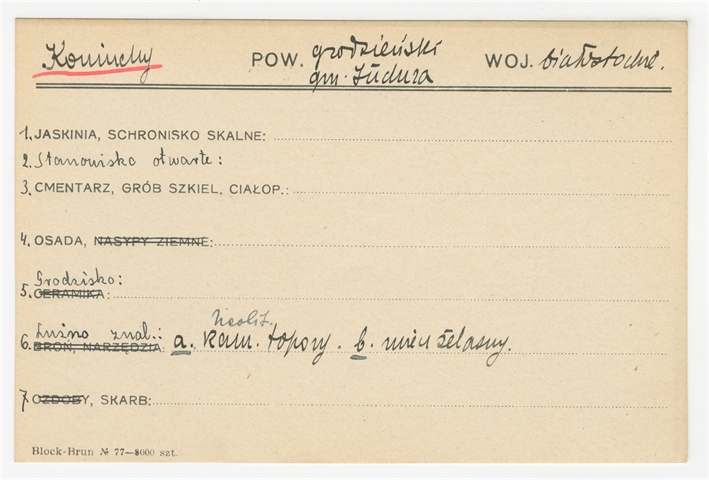 Kominchy POW. grodzieński WOJ. białostockie.
gm. Indura
1. JASKINIA, SCHRONISKO SKALNE:
2. Stanowisko otwarte:
3. CMENTARZ, GRÓB SZKIEL. CIAŁOP.:
4. OSADA, NASYPY ZIEMNE:
Grodzisko:
5. CERAMIKA:
neolit.
Luźno znal.: a. kam. topory. b. miecz żelazny.
6. BROŃ, NARZĘDZIA:
7. OZDOBY, SKARB:
Block-Brun № 77—8000 szt.